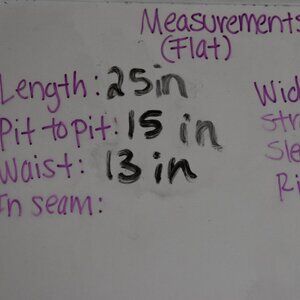 Measurements
(Flat)
Length: 25in
Pit to pit: 15 in
Waist: 13 in
In seam: